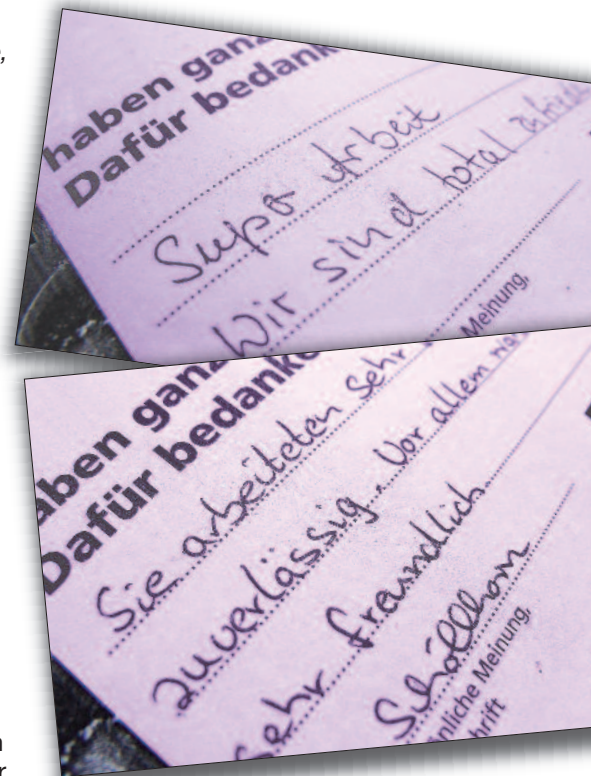 haben ganz
Dafür bedank
Super Arbeit
Wir sind total zufried
Meinung,
aben ganz
Dafür bedanke
Sie arbeiteten sehr
zuverlässig. Vor allem
sehr freundlich.
Schöllhorn
nliche Meinung,
hrift